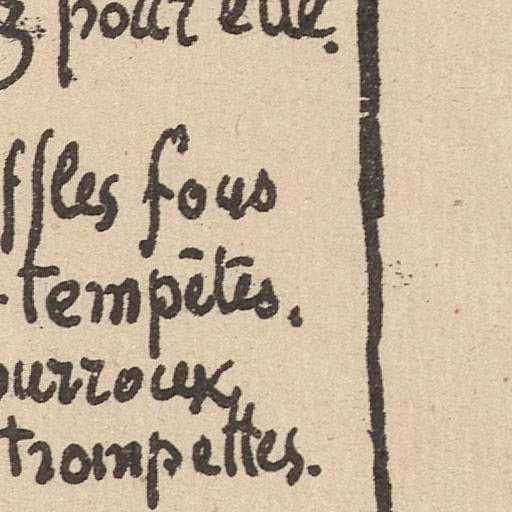 z pour elle.
ffles fous
-tempêtes.
ourroux,
trompettes.